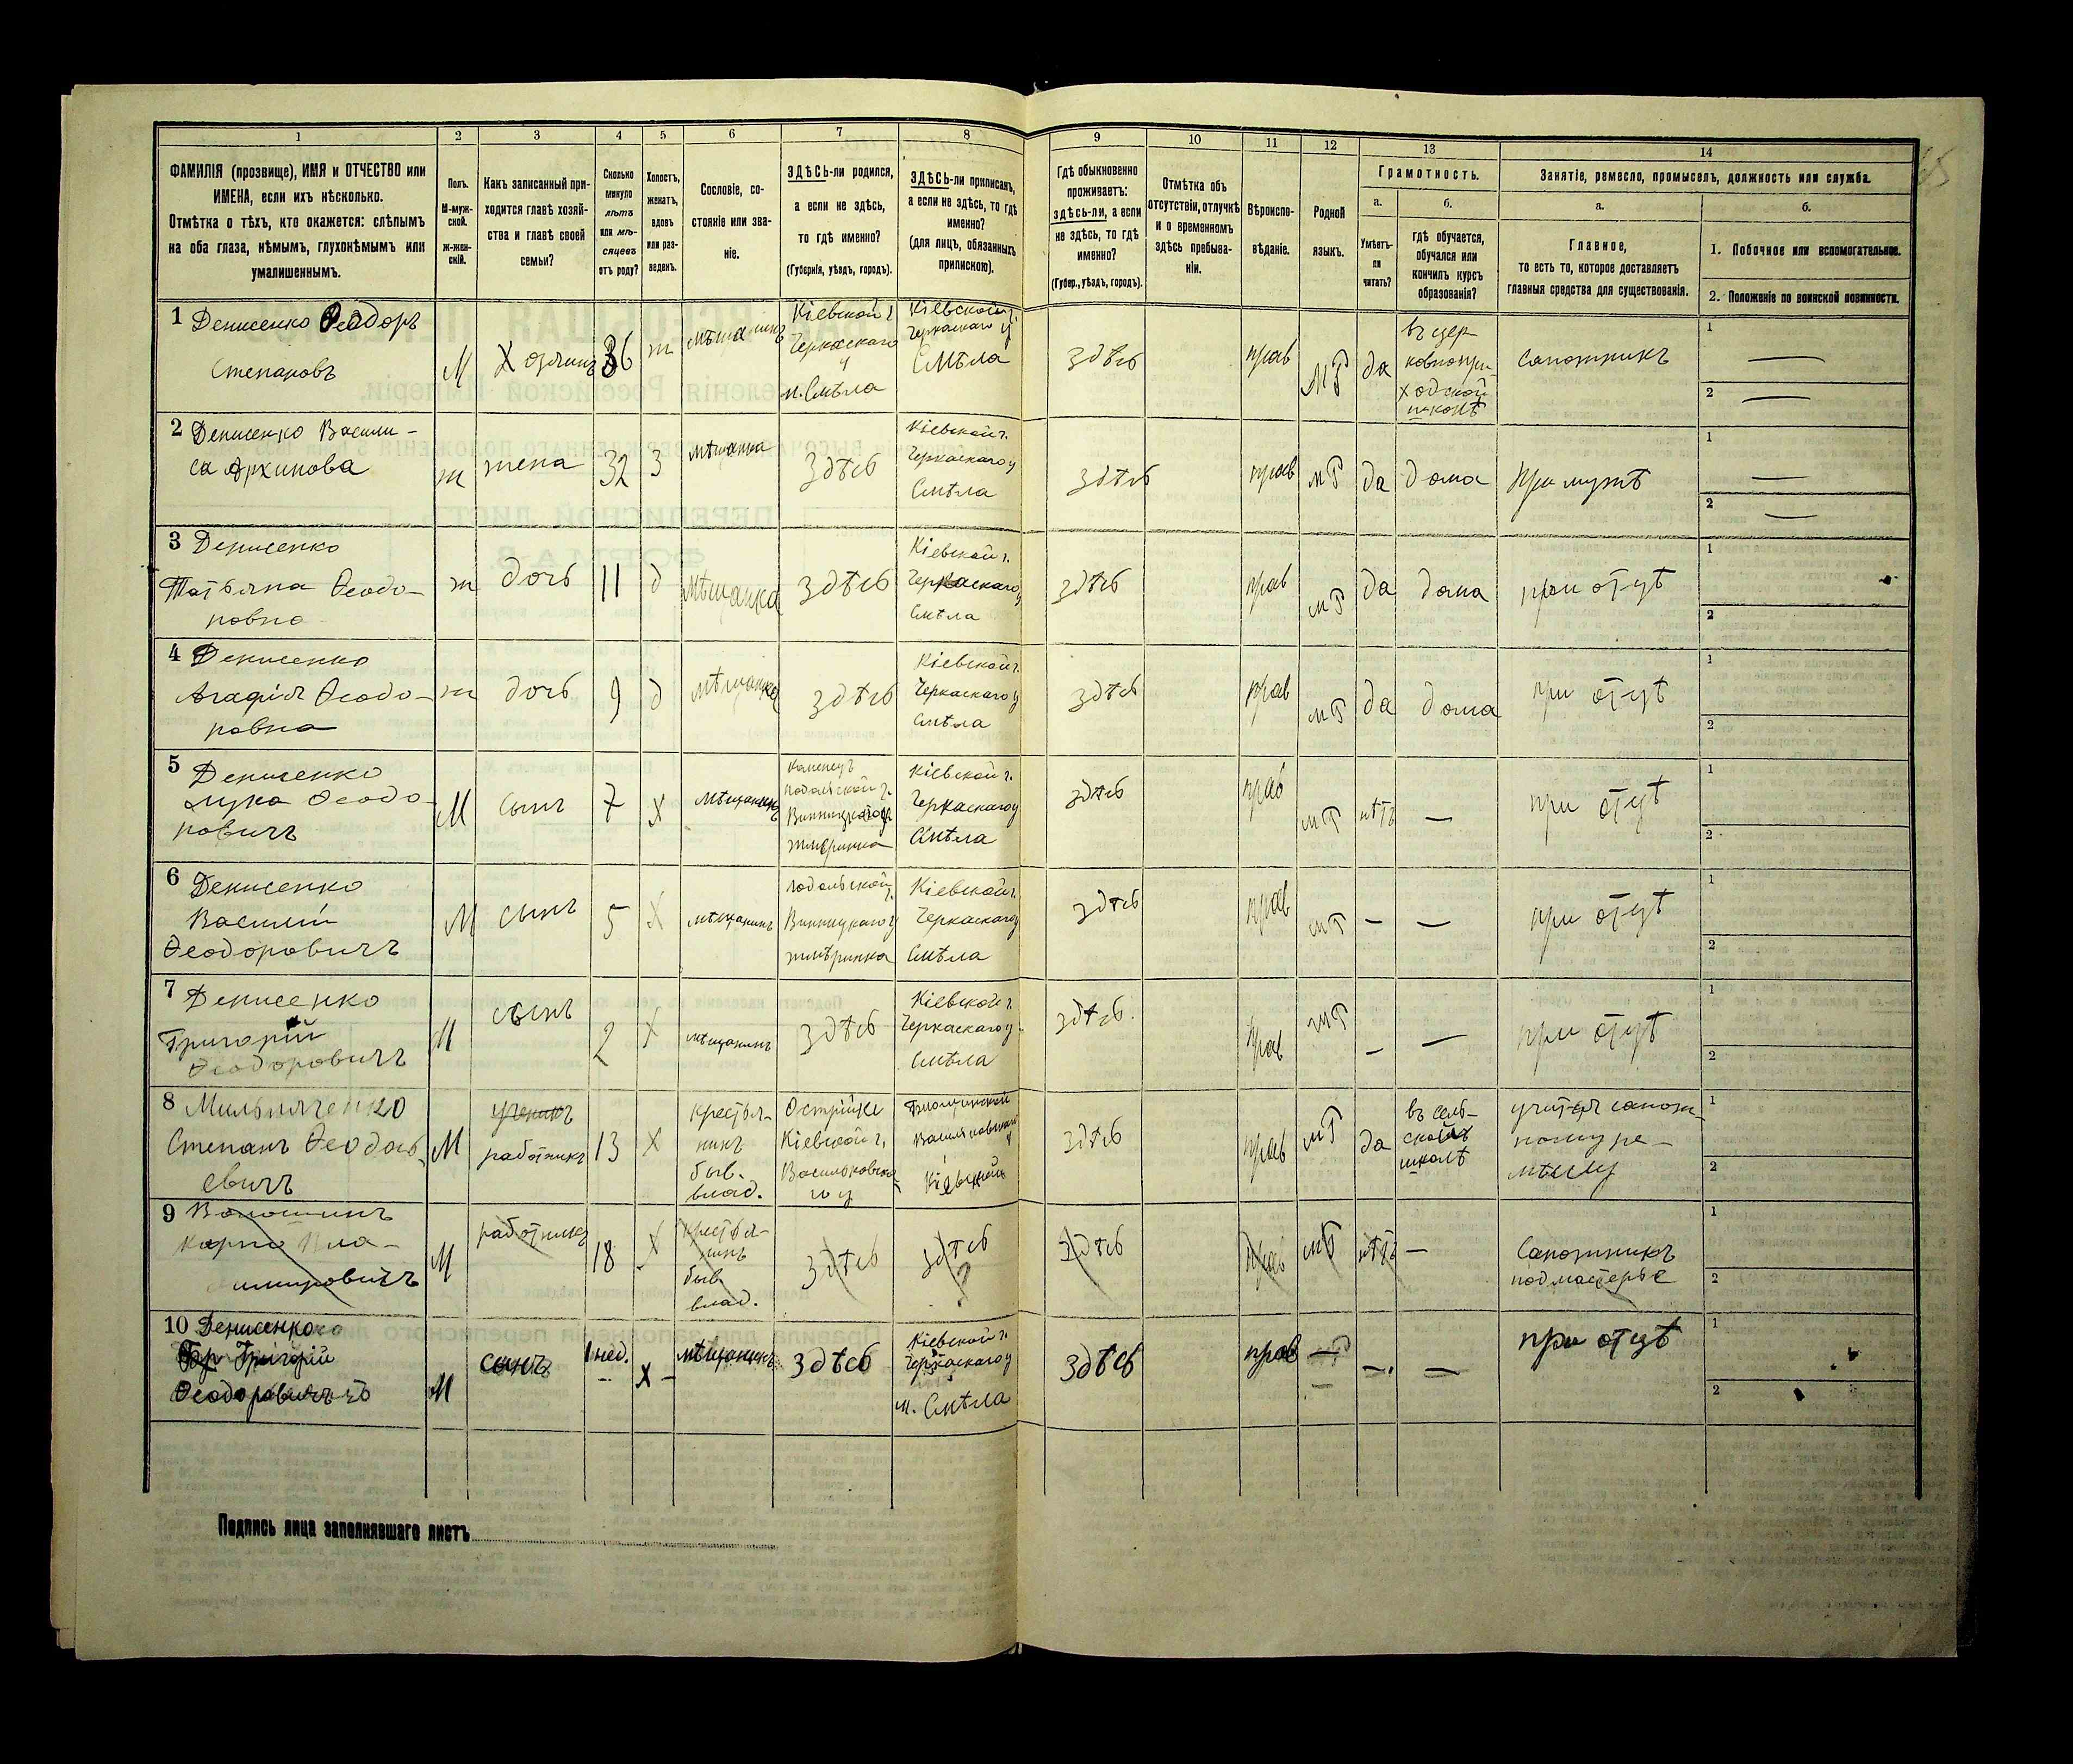 1
2
3
4
5
6
7
8
9
10
11
12
13
14
ФАМИЛІЯ (прозвище), ИМЯ и ОТЧЕСТВО или
ИМЕНА, если ихъ нѣсколько.
Отмѣтка о тѣхъ, кто окажется: слѣпымъ
на оба глаза, нѣмымъ, глухонѣмымъ или
умалишеннымъ.
Полъ.
М-муж-
ской.
Ж-жен-
скій.
Какъ записанный при-
ходится главѣ хозяй-
ства и главѣ своей
семьи?
Сколько
минуло
лѣтъ
или мѣ-
сяцевъ
отъ роду?
Холостъ,
женатъ,
вдовъ
или раз-
веденъ.
Сословіе, со-
стояніе или зва-
ніе.
ЗДѢСЬ-ли родился,
а если не здѣсь,
то гдѣ именно?
(Губернія, уѣздъ, городъ).
ЗДѢСЬ-ли приписанъ,
а если не здѣсь, то гдѣ
именно?
(для лицъ, обязанныхъ
припискою).
Гдѣ обыкновенно
проживаетъ:
здѣсь-ли, а если
не здѣсь, то гдѣ
именно?
(Губер., уѣздъ, городъ).
Отмѣтка объ
отсутствіи, отлучкѣ
и о временномъ
здѣсь пребыва-
ніи.
Вѣроиспо-
вѣданіе.
Родной
языкъ.
Грамотность.
а.
Умѣетъ-
ли
читать?
б.
гдѣ обучается,
обучался или
кончилъ курсъ
образованія?
Занятіе, ремесло, промыселъ, должность или служба.
а.
Главное,
то есть то, которое доставляетъ
главныя средства для существованія.
б.
1. Побочное или вспомогательное.
2. Положеніе по воинской повинности.
1 Денисенко Ѳеодоръ
Степановъ
М
Хозяинъ
36
ж
мѣщанинъ
Кіевской г
Черкаскаго
у
м. Смѣла
Кіевской г.
Черкаскаго у
Смѣла
здѣсь
прав
МР
да
въ цер
ковнопри
ходской
школѣ
сапожникъ
1
2
2 Денисенко Васили-
са Архипова
ж
жена
32
З
мѣщанка
Здѣсь
Кіевской г.
Черкаскаго у
Смѣла
здѣсь
прав
мР
да
дома
При мужѣ
1
2
3 Денисенко
Татьяна Ѳеодо-
ровна
ж
дочь
11
д
Мѣщанка
здѣсь
Кіевской г.
Черкаскаго у
Смѣла
здѣсь
прав
мР
да
дома
при отцѣ
1
2
4 Денисенко
Агафія Ѳеодо-
ровна
ж
дочь
9
д
мѣщанка
здѣсь
Кіевской г.
Черкаскаго у
Смѣла
здѣсь
прав
мР
да
дома
при отцѣ
1
2
5 Денисенко
Лука Ѳеодо-
ровичъ
М
сынъ
7
х
мѣщанинъ
каменецъ
подольской г.
Винницкаго у
жмеринка
Кіевской г.
Черкаскаго у
Смѣла
здѣсь
прав
мР
нѣтъ
—
при отцѣ
1
2
6 Денисенко
Василій
Ѳеодоровичъ
М
сынъ
5
х
мѣщанинъ
подольской
г.
Винницкаго у
жмѣринка
Кіевской г.
Черкаскаго у
Смѣла
здѣсь
прав
мР
—
—
при отцѣ
1
2
7 Денисенко
Григорій
Ѳеодоровичъ
М
сынъ
2
х
мѣщанинъ
здѣсь
Кіевской г.
Черкаскаго у
Смѣла
здѣсь.
прав
мР
—
—
при отцѣ
1
2
8
Степанъ Ѳеодось-
евичъ
М
ученикъ
работникъ
13
х
крестья-
нинъ
быв.
влад.
Острійки
Кіевской г,
Васильковска
го у
Кіевской
здѣсь
прав
мР
да
въ сель-
ской
школѣ
учится сапож-
ному ре-
меслу
1
2
9 Волошинъ
М
работникъ
18
х
крестья-
нинъ
быв
влад.
здѣсь
здѣсь
?
здѣсь
прав
мР
нѣтъ
—
Сапожникъ
подмастерье
1
2
10 Денисенко
Григорій
Ѳеодоровичъ
М
сынъ
1 нед.
х
мѣщанинъ
здѣсь
Кіевской г.
Черкаскаго у
м. Смѣла
Здѣсь
прав
—
—
—
при отцѣ
1
2
Подпись лица заполнявшаго листъ